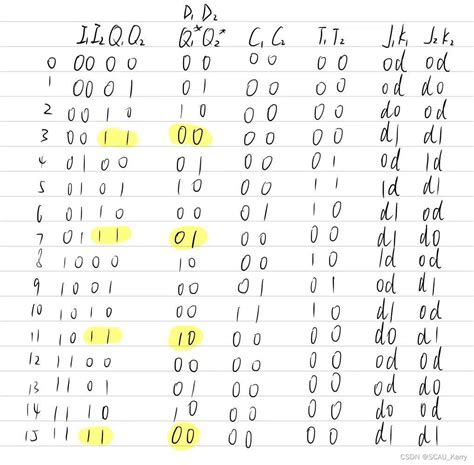 D₁ D₂
I₁I₂Q₁Q₂ Q₁*Q₂* C₁ C₂ T₁ T₂ J₁K₁ J₂K₂
0 0000 00 00 00 0d 0d
1 0001 01 00 00 0d d0
2 0010 10 00 00 d0 0d
3 0011 00 00 00 d1 d1
4 0100 01 00 01 0d 1d
5 0101 10 00 11 1d d1
6 0110 00 01 10 d1 0d
7 0111 01 00 00 d1 d0
8 1000 10 00 10 1d 0d
9 1001 00 01 01 0d d1
10 1010 00 11 10 d1 0d
11 1011 10 00 00 d0 d1
12 1100 00 00 00 0d 0d
13 1101 01 00 00 0d d0
14 1110 10 00 00 d0 0d
15 1111 00 00 00 d1 d1
CSDN @SCAU_Kerry